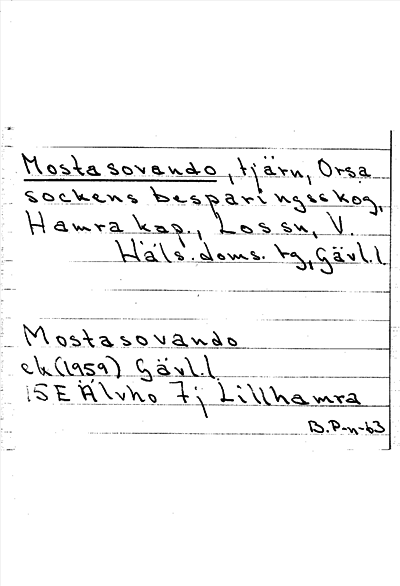 Mostasovando, tjärn, Orsa
sockens besparingsskog,
Hamra kap., Los sn, V.
Häls. doms. tg, Gävl. l
Mostasovando
ek (1959) Gävl. l
15E Älvho 7j Lillhamra
B. P-n-63